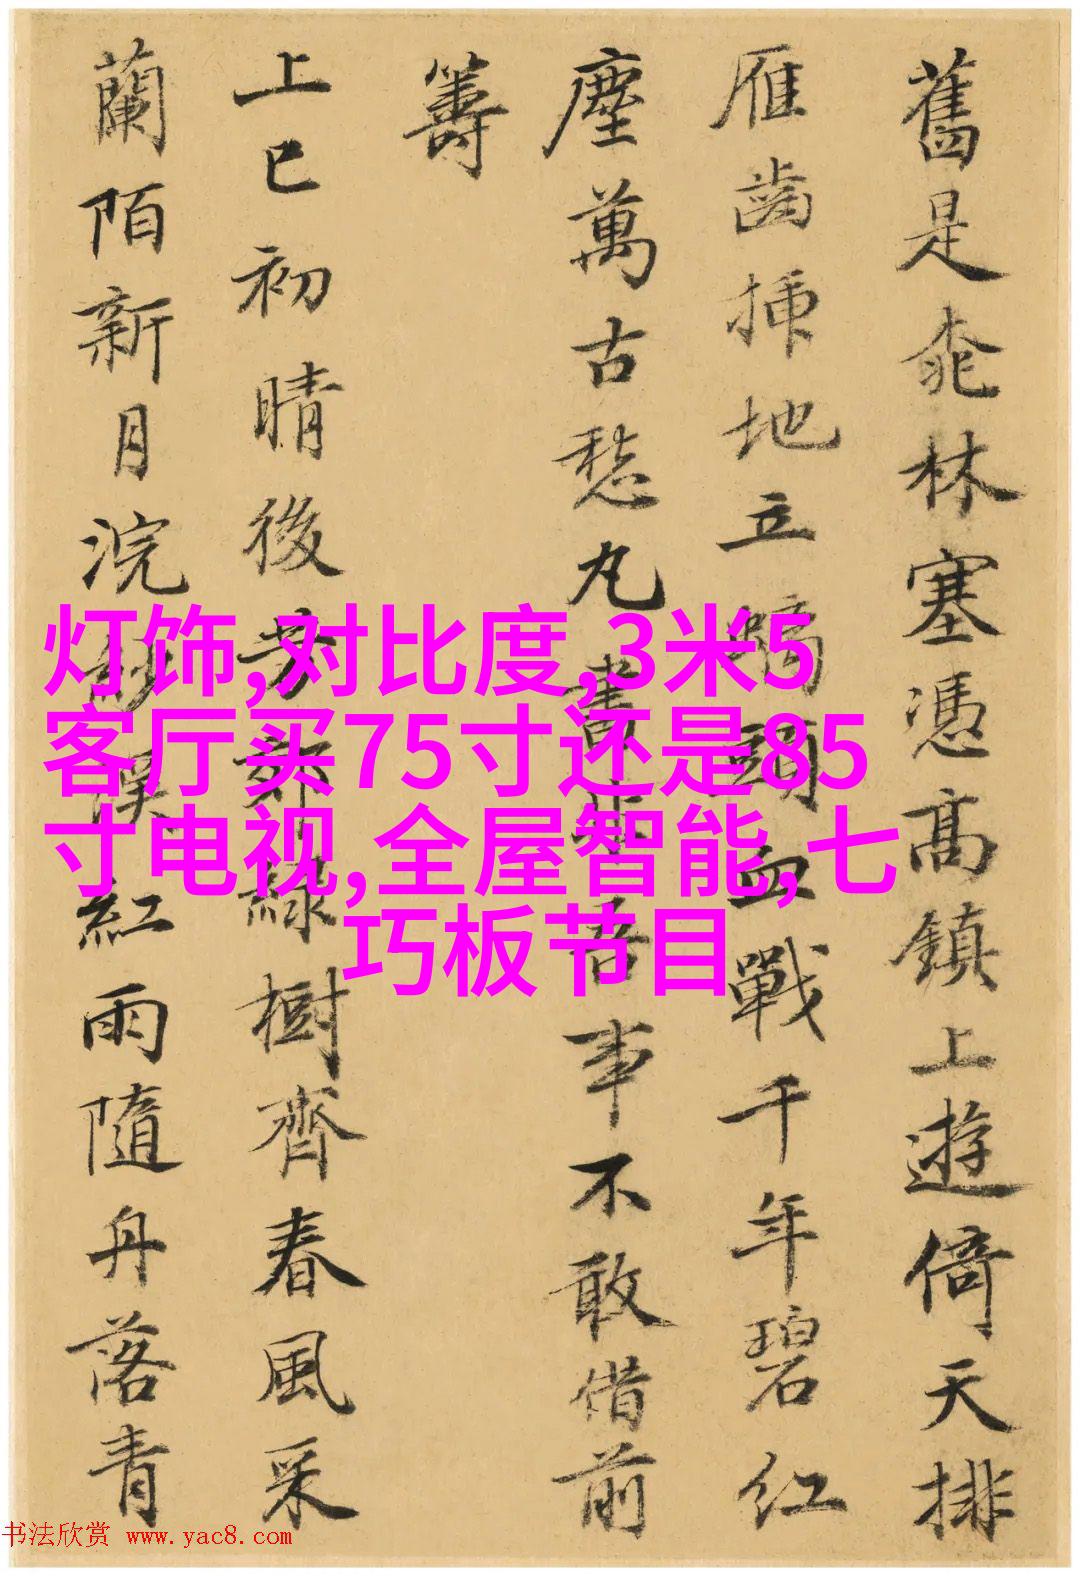 舊是桃林塞憑高鎮上遊倚天排
雁齒插地立頭血戰千年碧紅
塵萬古愁丸書非吾事不敢借前
籌
上巳初晴後芳郊綠樹齊春風采
蘭陌新月浣紗溪紅雨隨丹落青
灯饰,对比度,3米5
客厅买75寸还是85
寸电视,全屋智能,七
巧板节目
书法欣赏 www.yac8.com